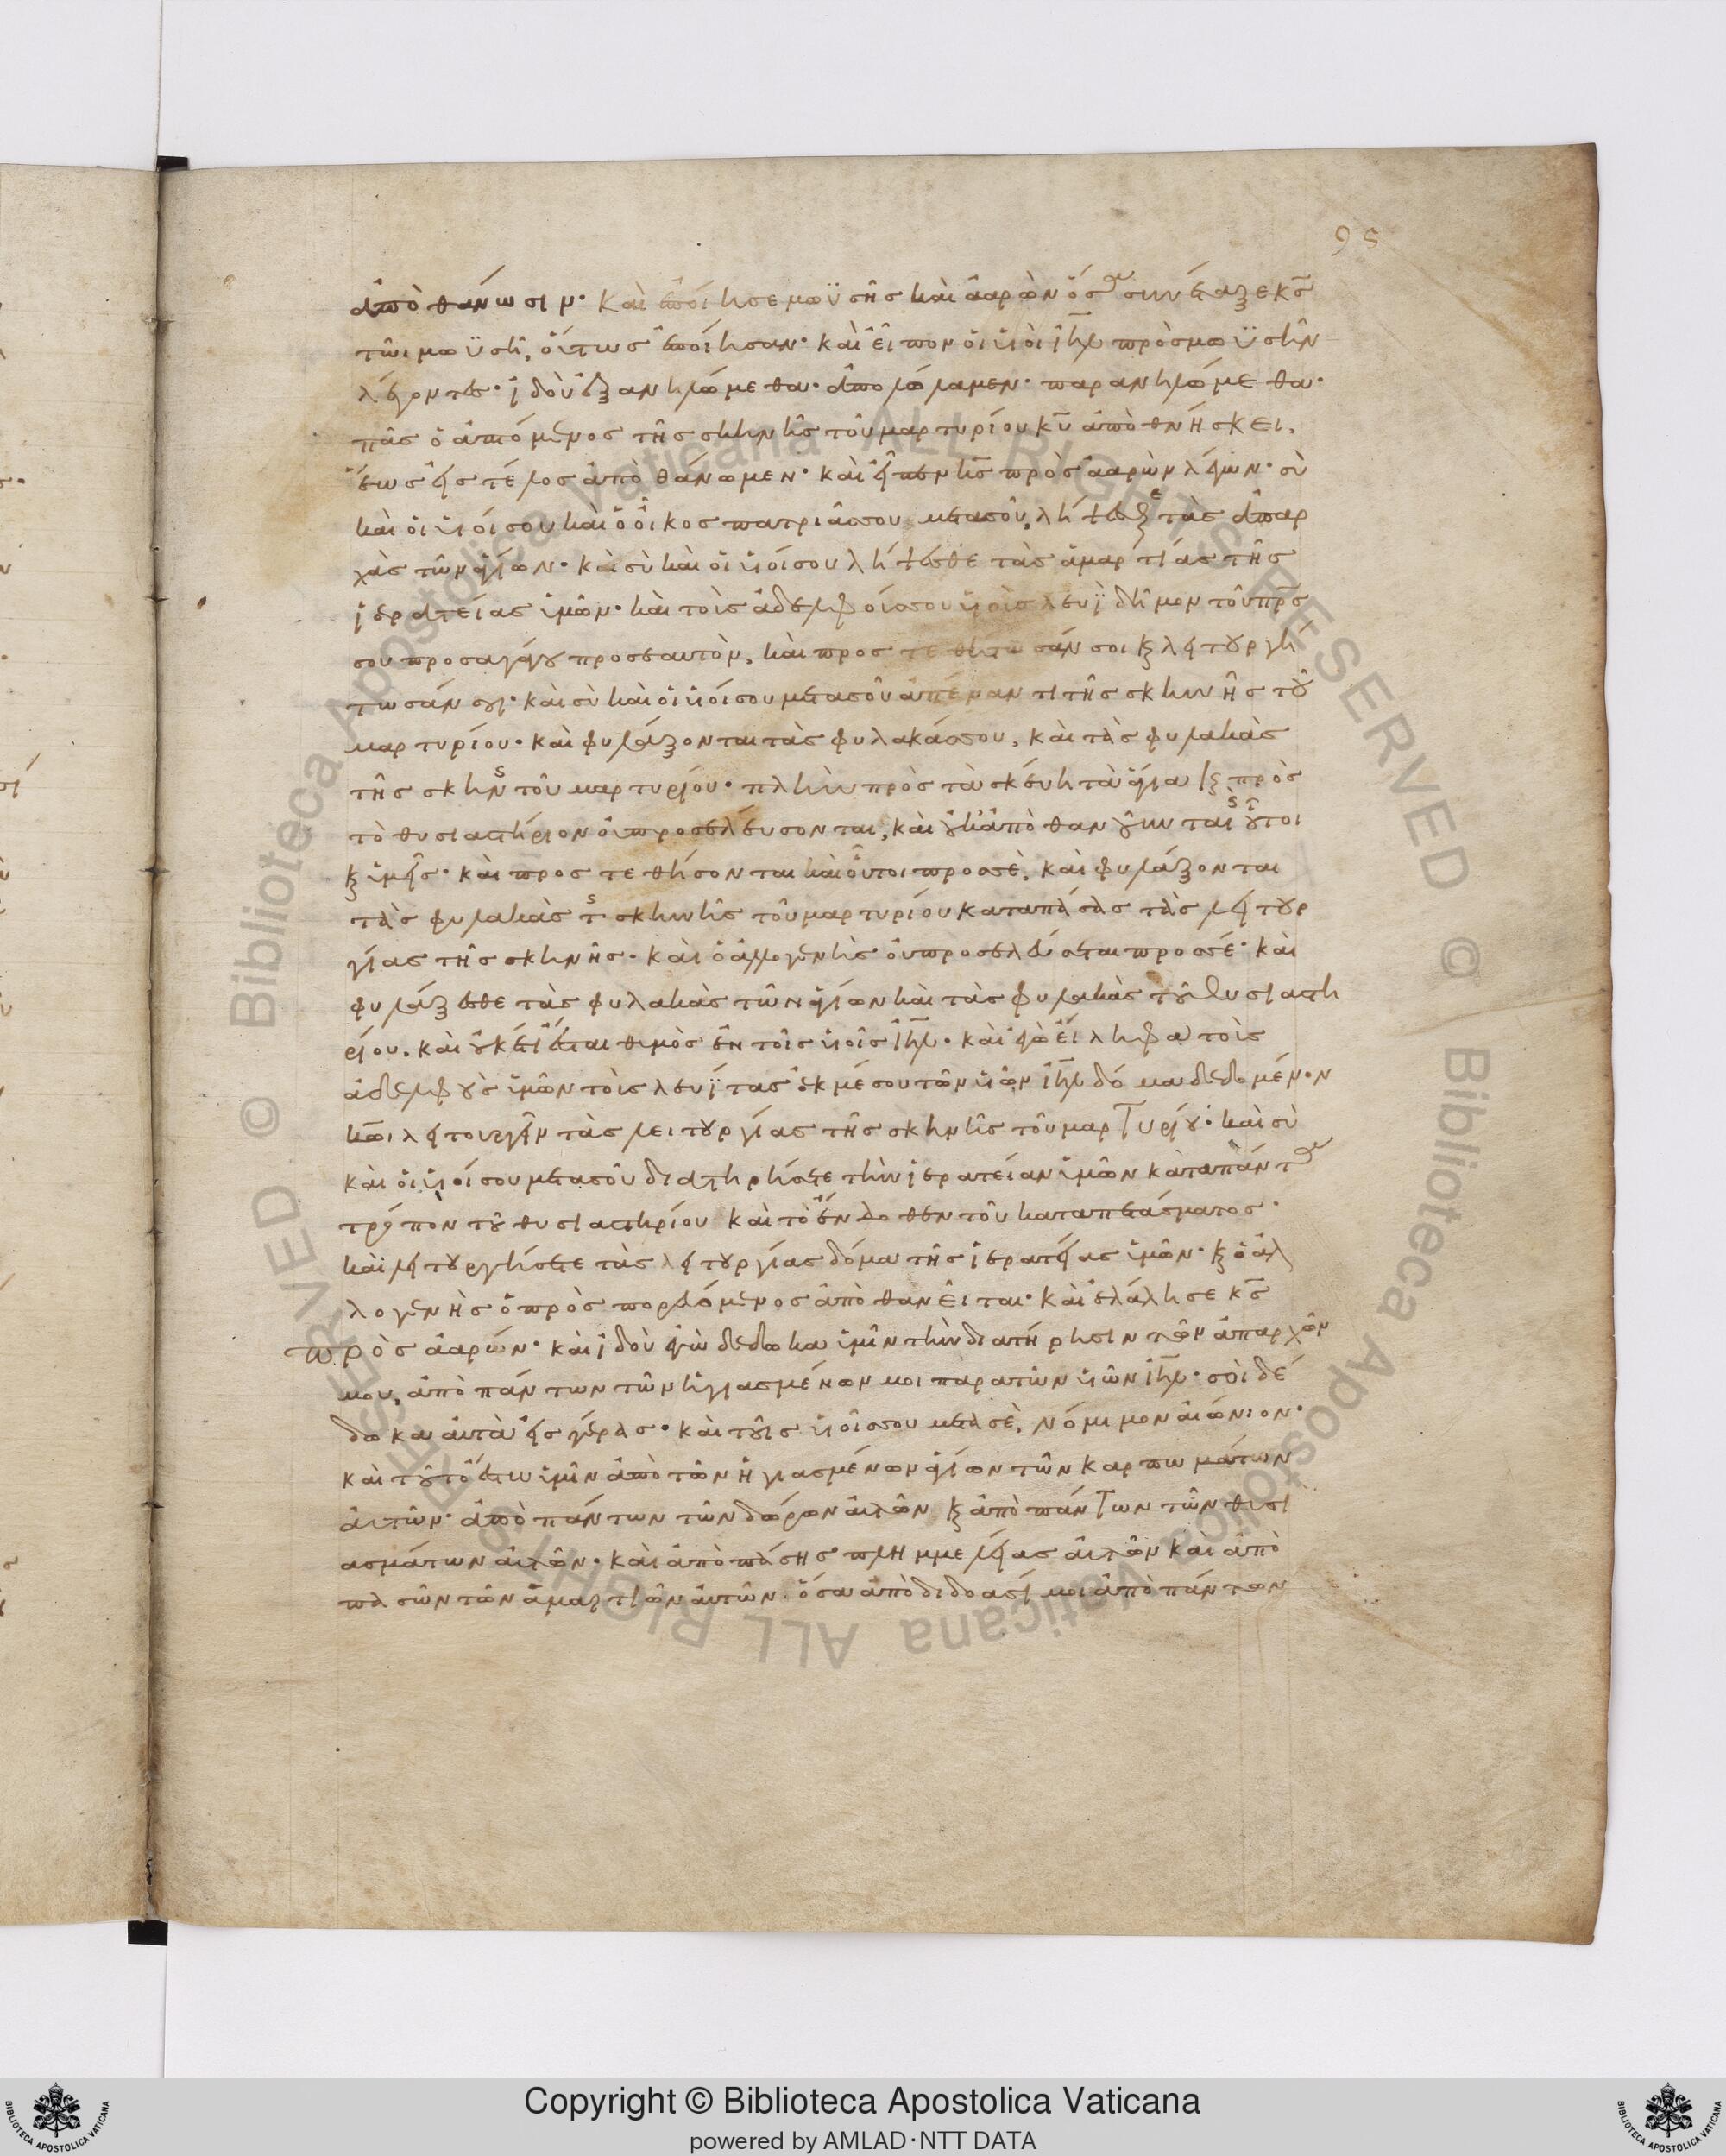 95
ἀποθάνωσιν· καὶ ἐποίησε μωϋσῆς καὶ ἀαρὼν ὃν συνέταξε κς
τῶι μωϋσῆ, οὕτως ἐποίησαν· καὶ εἶπον οἱ υἱοὶ ιηλ πρὸς μωϋσῆν
λέγοντες· ἰδοὺ ἐξανηλώμεθα· ἀπολώλαμεν· παρανηλώμεθα·
πᾶς ὁ ἁπτόμενος τῆς σκηνῆς τοῦ μαρτυρίου κυ ἀποθνήσκει.
ἕως εἰς τέλος ἀποθάνωμεν· καὶ εἶπεν κς πρὸς ἀαρὼν λέγων· σὺ
καὶ οἱ υἱοί σου καὶ ὁ οἶκος πατριᾶς σου μετα σοῦ, λήψεσθε τὰς ἀπαρ
χὰς τῶν ἁγίων· καὶ σὺ καὶ οἱ υἱοί σου λήψεσθε τὰς ἁμαρτίας τῆς
ἱερατείας ὑμῶν· καὶ τοὺς ἀδελφούς σου υἱοὺς λευῒ δῆμον τοῦ πρς
σου προσαγάγου πρὸς σεαυτὸν, καὶ προστεθητωσάν σοι κ λειτουργη
τωσάν σοι· καὶ σὺ καὶ οἱ υἱοί σου μετα σοῦ ἀπέναντι τῆς σκηνῆς τοῦ
μαρτυρίου· καὶ φυλάξονται τὰς φυλακάς σου, καὶ τὰς φυλακὰς
τῆς σκηνς τοῦ μαρτυρίου· πλὴν πρὸς τὰ σκεύη τὰ ἅγια κ πρὸς
τὸ θυσιαστήριον οὐ προσελεύσονται, καὶ οὐκ ἀποθανοῦνται κ οὗτοι
κ ὑμεῖς· καὶ προστεθήσονται καὶ οὗτοι προσσὲ, καὶ φυλάξονται
τὰς φυλακὰς τς σκηνῆς τοῦ μαρτυρίου καταπάσας τὰς λειτουρ
γίας τῆς σκηνῆς· καὶ ὁ ἀλλογενὴς οὐ προσελεύσεται προσσέ· καὶ
φυλάξεσθε τὰς φυλακὰς τῶν ἁγίων καὶ τὰς φυλακὰς τοῦ θυσιαστη
ρίου. καὶ οὐκέτι ἔσται θυμὸς ἐν τοῖς υἱοῖς ιηλ· καὶ ἐγὼ εἴληφα τοὺς
ἀδελφοὺς ὑμῶν τοὺς λευΐτας ἐκ μέσου τῶν υἱῶν ιηλ δόμα δεδομένον
κωι λειτουργεῖν τὰς λειτουργίας τῆς σκηνῆς τοῦ μαρτυρίου· καὶ σὺ
καὶ οἱ υἱοί σου μετα σοῦ διατηρήσετε τὴν ἱερατείαν ὑμῶν κατα πάντα
τρόπον τοῦ θυσιαστηρίου καὶ τὸ ἔνδοθεν τοῦ καταπετάσματος·
καὶ λειτουργήσετε τὰς λειτουργίας δόμα τῆς ἱερατείας ὑμῶν· κ ὁ ἀλ
λογενὴς ὁ πρὸς πορευόμενος ἀποθανεῖται· καὶ ἐλάλησε κς
πρὸς ἀαρών· καὶ ἰδοὺ ἐγὼ δέδωκα ὑμῖν τὴν διατήρησιν τῶν ἀπαρχῶν
μου, ἀπὸ πάντων τῶν ἡγιασμένων μοι παρα τῶν υἱῶν ιηλ· σοὶ δέ
δωκα αὐτὰ εἰς γέρας· καὶ τοῖς υἱοῖς σου μετα σὲ, νόμιμον αἰώνιον·
καὶ τοῦτο ἔστω ὑμῖν ἀπὸ τῶν ἡγιασμένων ἁγίων τῶν καρπωμάτων
αὐτῶν· ἀπὸ πάντων τῶν δώρων αὐτῶν κ ἀπὸ πάντων τῶν θυσι
ασμάτων αὐτῶν· καὶ ἀπὸ πάσης πλημμελείας αὐτῶν καὶ ἀπὸ
πασῶν τῶν ἁμαρτιῶν αὐτῶν· ὅσα ἀποδιδοασί μοι ἀπὸ πάντων
Copyright © Biblioteca Apostolica Vaticana
powered by AMLAD·NTT DATA